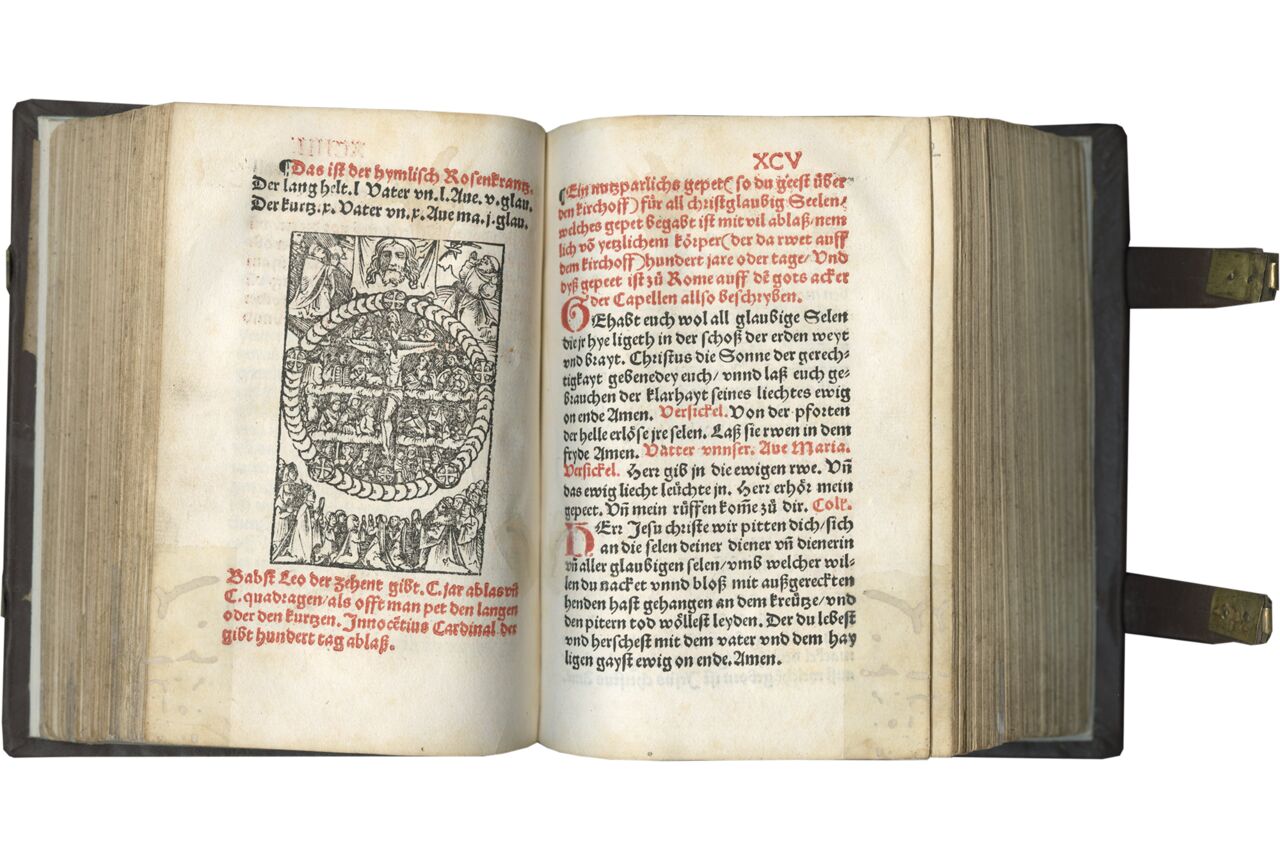 ¶Das ist der hymlisch Rosenkrantz.
Der lang helt. l Vater vn. l. Aue. v. glau.
Der kurtz. x. Vater vn. x. Aue ma. j. glau.
Babst Leo der zehent gibt. C. jar ablas vñ
C. quadragen/als offt man pet den langen
oder den kurtzen. Innocẽtius Cardinal der
gibt hundert tag ablaß.
XCV
¶Ein nutzparlichs gepet (so du geest über
den kirchoff) für all christglaubig Seelen/
welches gepet begabt ist mit vil ablaß/nem
lich võ yetzlichem körper (der da rwet auff
dem kirchoff) hundert jare oder tage/ Vnd
dyß gepeet ist zů Rome auff dẽ gots acker
der Capellen allso beschryben.
GEhabt euch wol all glaubige Selen
die jr hye ligeth in der schoß der erden weyt
vnd brayt. Christus die Sonne der gerech⸗
tigkayt gebenedey euch/ vnnd laß euch ge⸗
brauchen der klarhayt seines liechtes ewig
on ende Amen. Versickel. Von der pforten
der helle erlöse jre selen. Laß sie rwen in dem
fryde Amen. Vatter vnnser. Aue Maria.
Versickel. Herr gib jn die ewigen rwe. Vñ
das ewig liecht leüchte jn. Herr erhör mein
gepeet. Vñ mein rüffen kom̃e zů dir. Colk.
HErr Jesu christe wir pitten dich/sich
an die selen deiner diener vñ dienerin
vñ aller glaubigen selen/vmb welcher wil⸗
len du nacket vnnd bloß mit außgereckten
henden hast gehangen an dem kreütze/vnd
den pitern tod wöllest leyden. Der du lebest
vnd herschest mit dem vater vnd dem hay
ligen gayst ewig on ende. Amen.